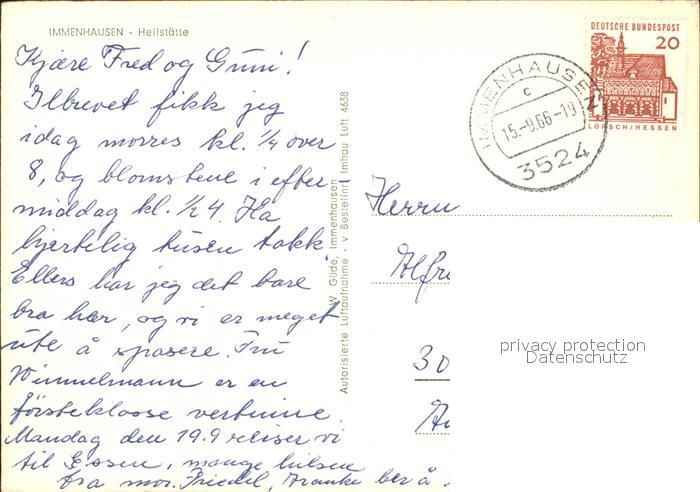 IMMENHAUSEN - Heilstätte
Kjære Fred og Gruni!
Ilbrevet fikk jeg
idag morres kl. 1/4 over
8, og blomstene i efter-
middag kl. 1/2 4. Ha
hjertelig tusen takk.
Ellers har jeg det bare
bra her, og vi er meget
ute å spasere. Fru
Wimmelmann er en
försteklasse vertinne.
Mandag den 19.9 reiser vi
til Essen, mange hilsen
fra mor. Friedel, ber å
W. Gude, Immenhausen
Autorisierte Luftaufnahme - v Bestellnr. Imhau Luft 4638
DEUTSCHE BUNDESPOST
20
LORSCH/HESSEN
IMMENHAUSEN
c
15.-9.66-19
3524
Herrn
Alfr
30
privacy protection
Datenschutz